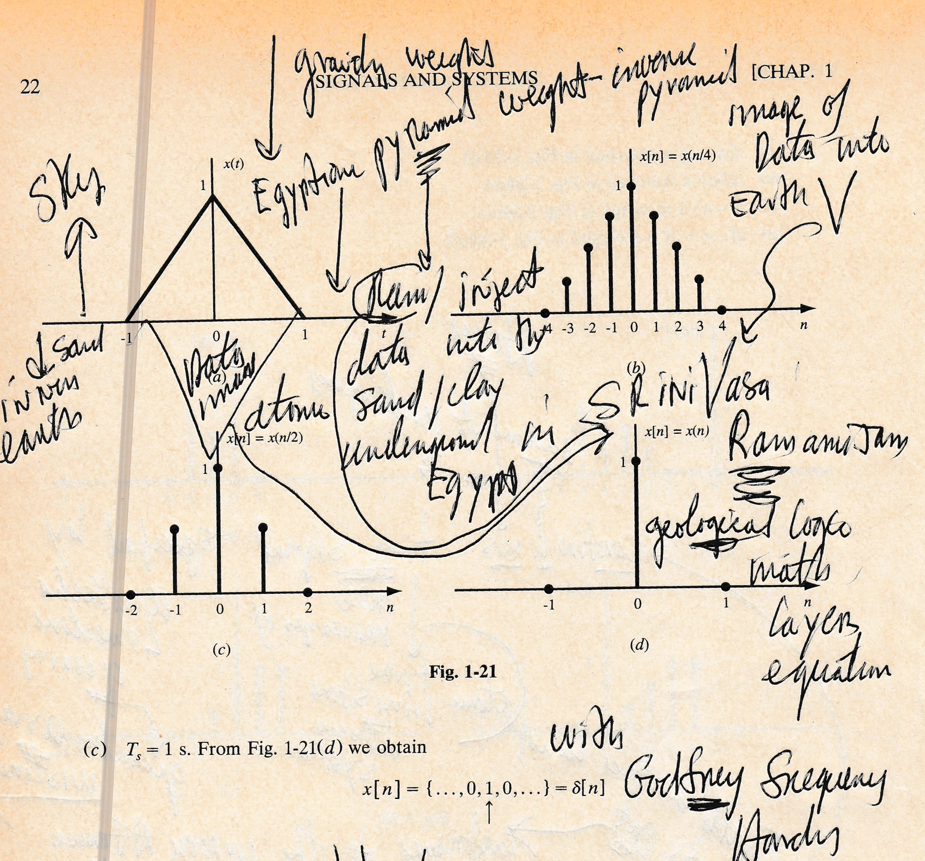 22
SIGNALS AND SYSTEMS
[CHAP. 1
gravity weights
weight - inverse
pyramid
image of
Data into
Earth V
Sky
Egyptian pyramid
x(t)
1
-1
0
1
t
(a)
x[n] = x(n/4)
1
-4 -3 -2 -1 0 1 2 3 4 n
(b)
sand
in
earth
Data
Ram / inject
data into the
sand / clay
underground in
Egypt
atomic
SRiniVasa
Ramanujam
geological logic
maths
Layers
equation
x[n] = x(n/2)
1
-2 -1 0 1 2 n
(c)
x[n] = x(n)
1
-1 0 1 n
(d)
Fig. 1-21
(c) Ts = 1 s. From Fig. 1-21(d) we obtain
x[n] = {…, 0, 1, 0, …} = δ[n]
↑
with
Godfrey frequency
Hardy